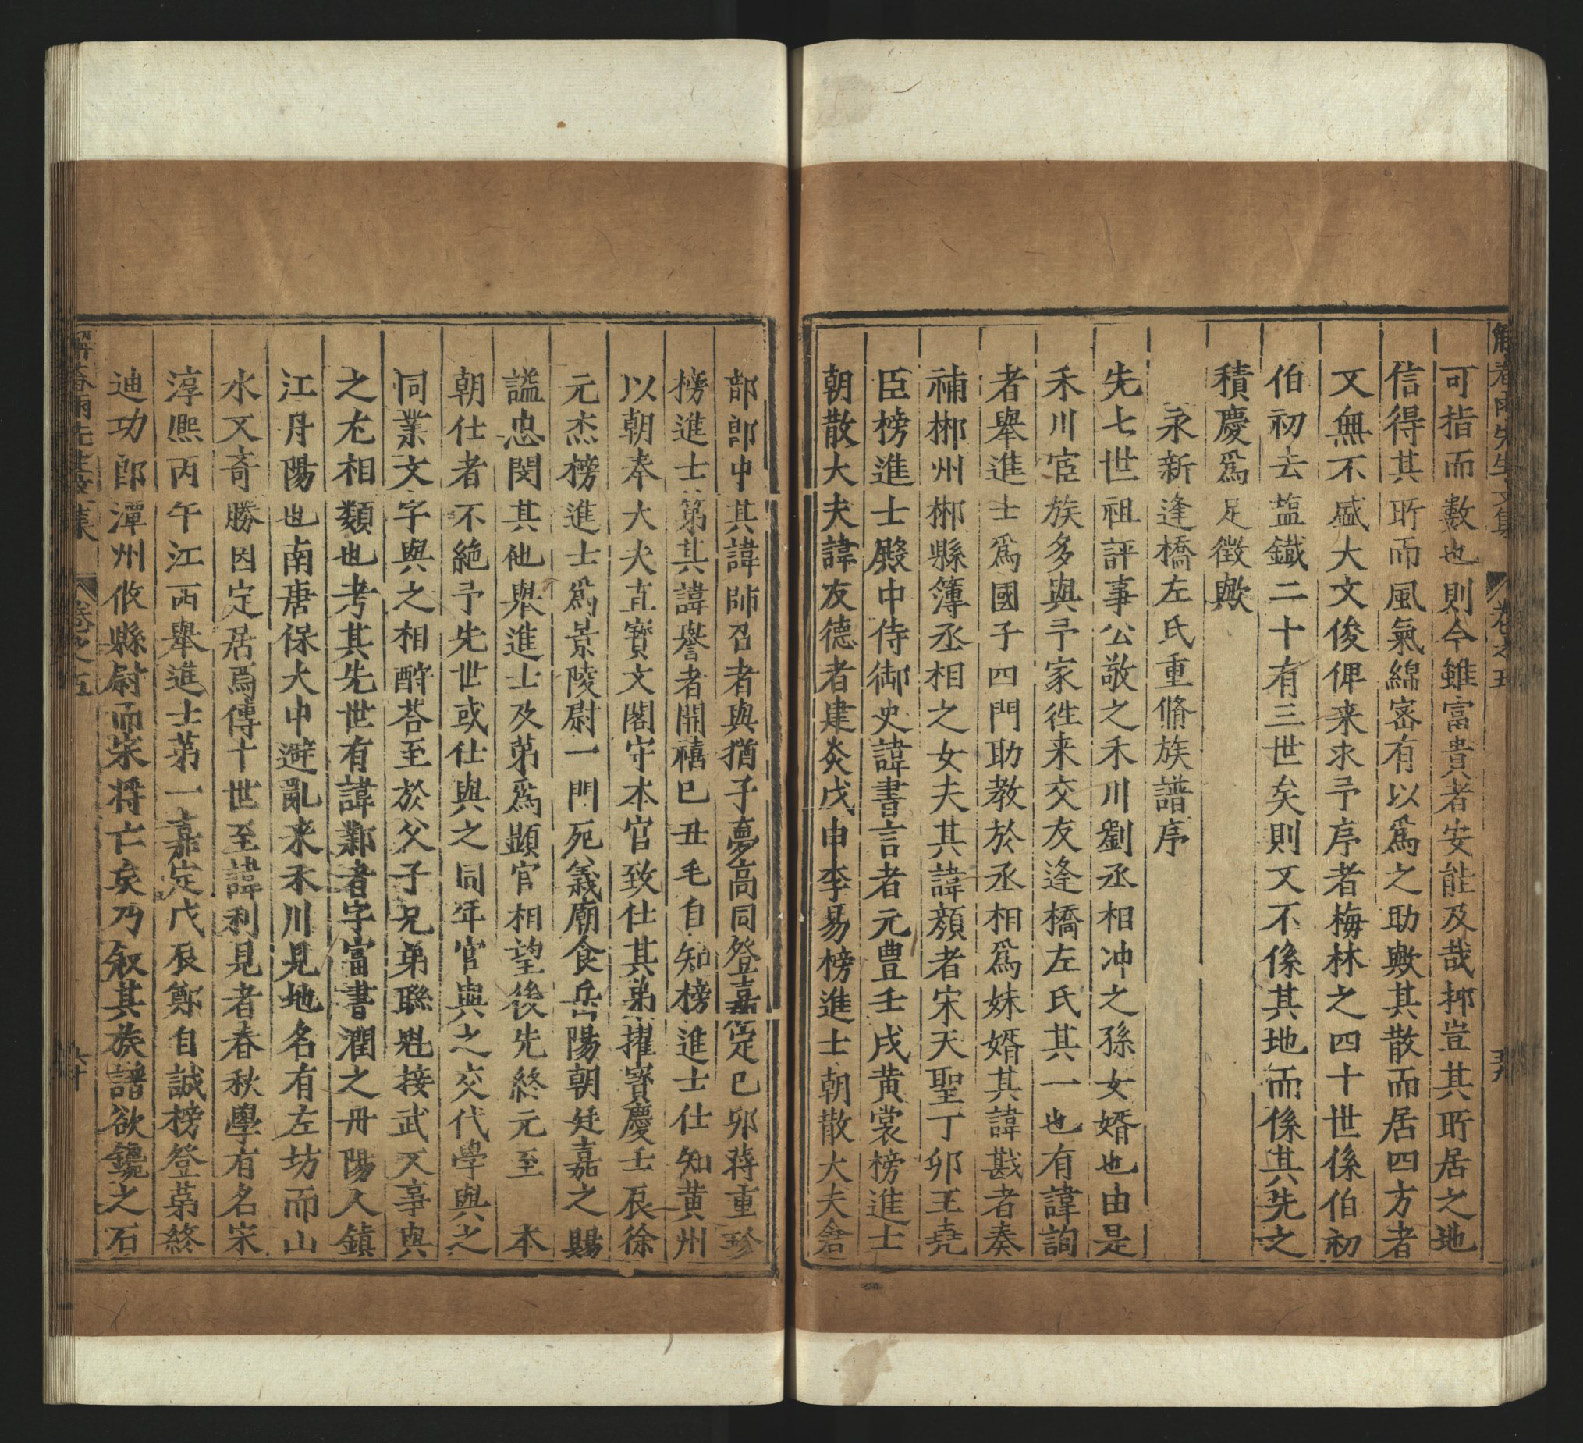 解春雨先生文集 卷之五 五十九
可指而數也則今雖富貴者安能及哉抑豈其所居之地
信得其所而風氣綿密有以爲之助歟其散而居四方者
又無不盛大文俊俾来求予序者梅林之四十世係伯初
伯初去藍鐵二十有三世矣則又不係其地而係其先之
積慶爲足徵歟
永新逢橋左氏重脩族譜序
先七世祖評事公敬之禾川劉丞相冲之孫女婿也由是
禾川宦族多與予家徃来交友逢橋左氏其一也有諱詢
者舉進士爲國子四門助教於丞相爲妹婿其諱戡者奏
補郴州郴縣簿丞相之女夫其諱顏者宋天聖丁卯王堯
臣榜進士殿中侍御史諱書言者元豊壬戌黃裳榜進士
朝散大夫諱友德者建炎戊申李易榜進士朝散大夫倉
部郎中其諱師召者與猶子夢高同登嘉定己卯蔣重珍
榜進士第其諱譽者開禧巳丑毛自知榜進士仕知黃州
以朝奉大夫直寶文閣守本官致仕其弟擢寶慶壬辰徐
元杰榜進士爲景陵尉一門死義廟食岳陽朝廷嘉之賜
謚忠閔其他舉進士及第爲顯官相望後先終元至 本
朝仕者不絶予先世或仕與之同年官與之交代學與之
同業文字與之相酧荅至於父子兄弟聯魁接武又事與
之尤相類也考其先世有諱鄴者字富書潤之丹陽人鎮
江丹陽也南唐保大中避亂来禾川見地名有左坊而山
水又奇勝因定居焉傳十世至諱利見者春秋學有名宋
淳熈丙午江西舉進士第一嘉定戊辰鄭自誠榜登第終
迪功郎潭州攸縣尉而宋將亡矣乃叙其族譜欲鑱之石
解春雨先生文集 卷之五 六十